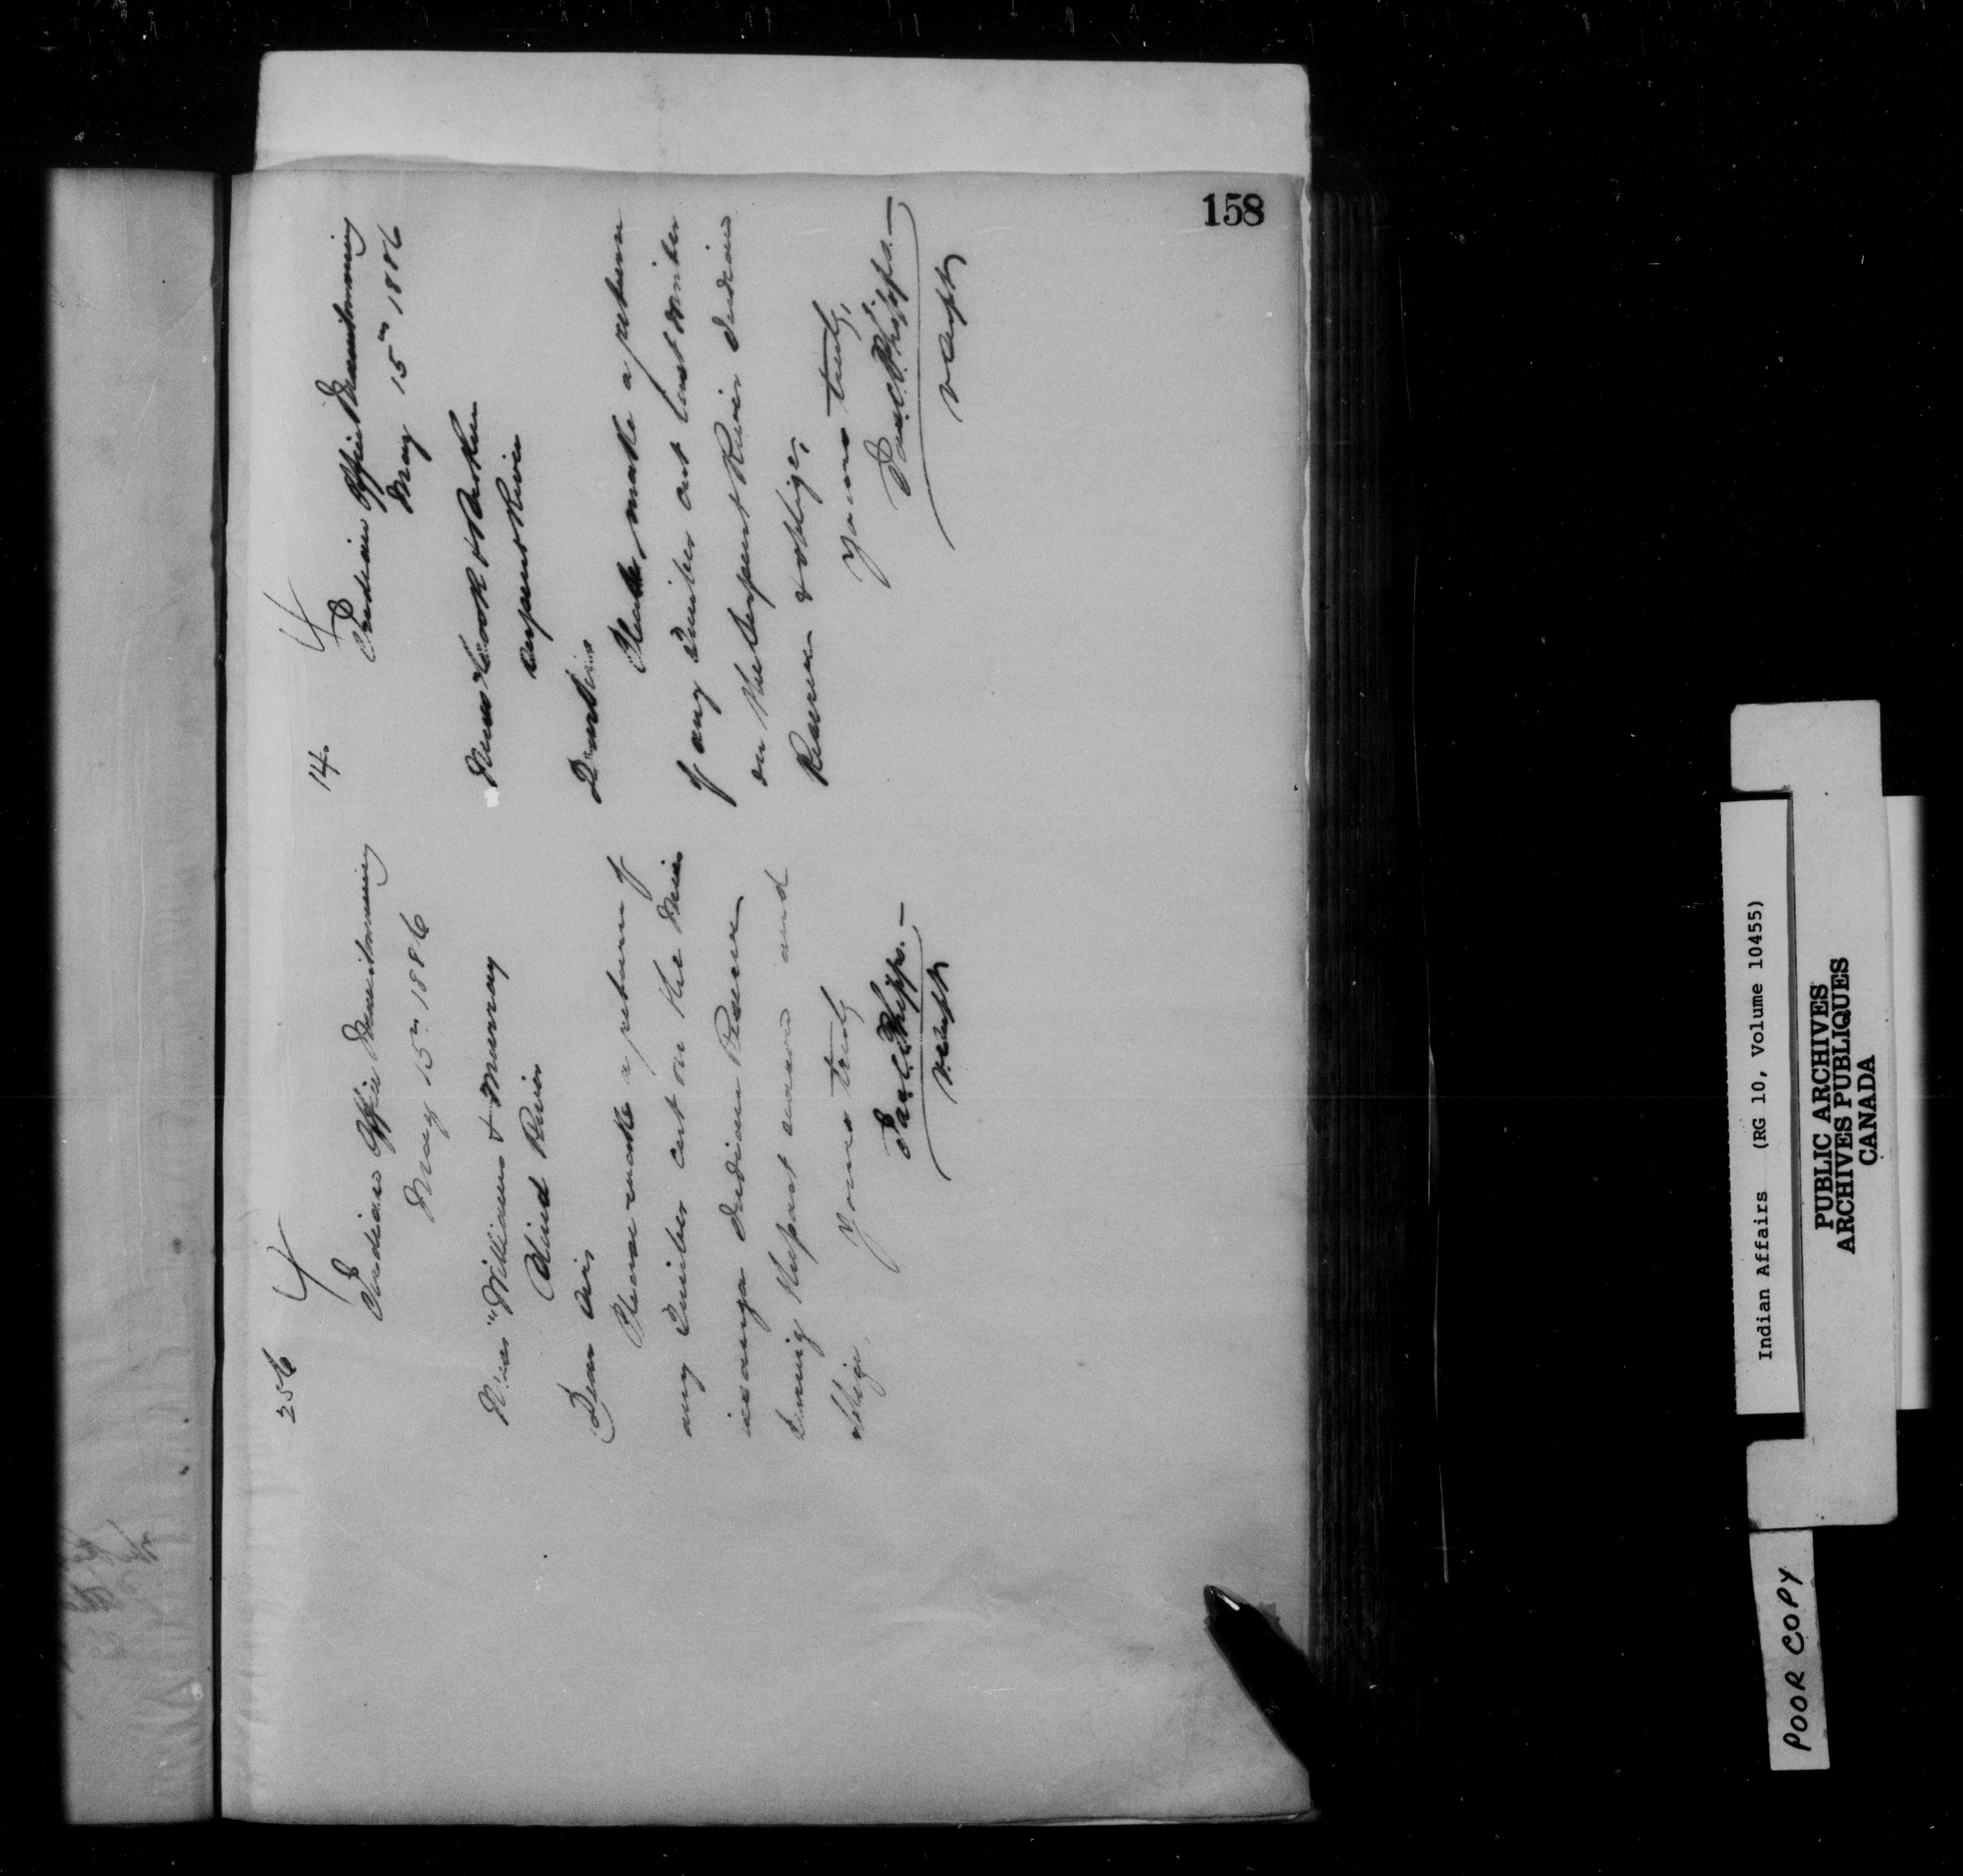 158
256
Indian Office Manitowaning
May 15th 1886
Messrs Williams & Murray
Blind River
Dear Sirs
Please make a return of
any Timber cut on the Missis
issauga Indian Reserve
during the past season and
oblige.
Yours truly
Jas. C. Phipps.—
V.S.I.A.
14.
Indian Office Manitowaning
May 15th 1886
Messrs Cook & Bro
Serpent River
Dear Sirs
Please make a return
of any Timber cut last winter
on the Serpent River Indian
Reserve & oblige,
Yours truly,
Jas. C. Phipps.—
Indian Affairs (RG 10, Volume 10455)
PUBLIC ARCHIVES
ARCHIVES PUBLIQUES
CANADA
POOR COPY